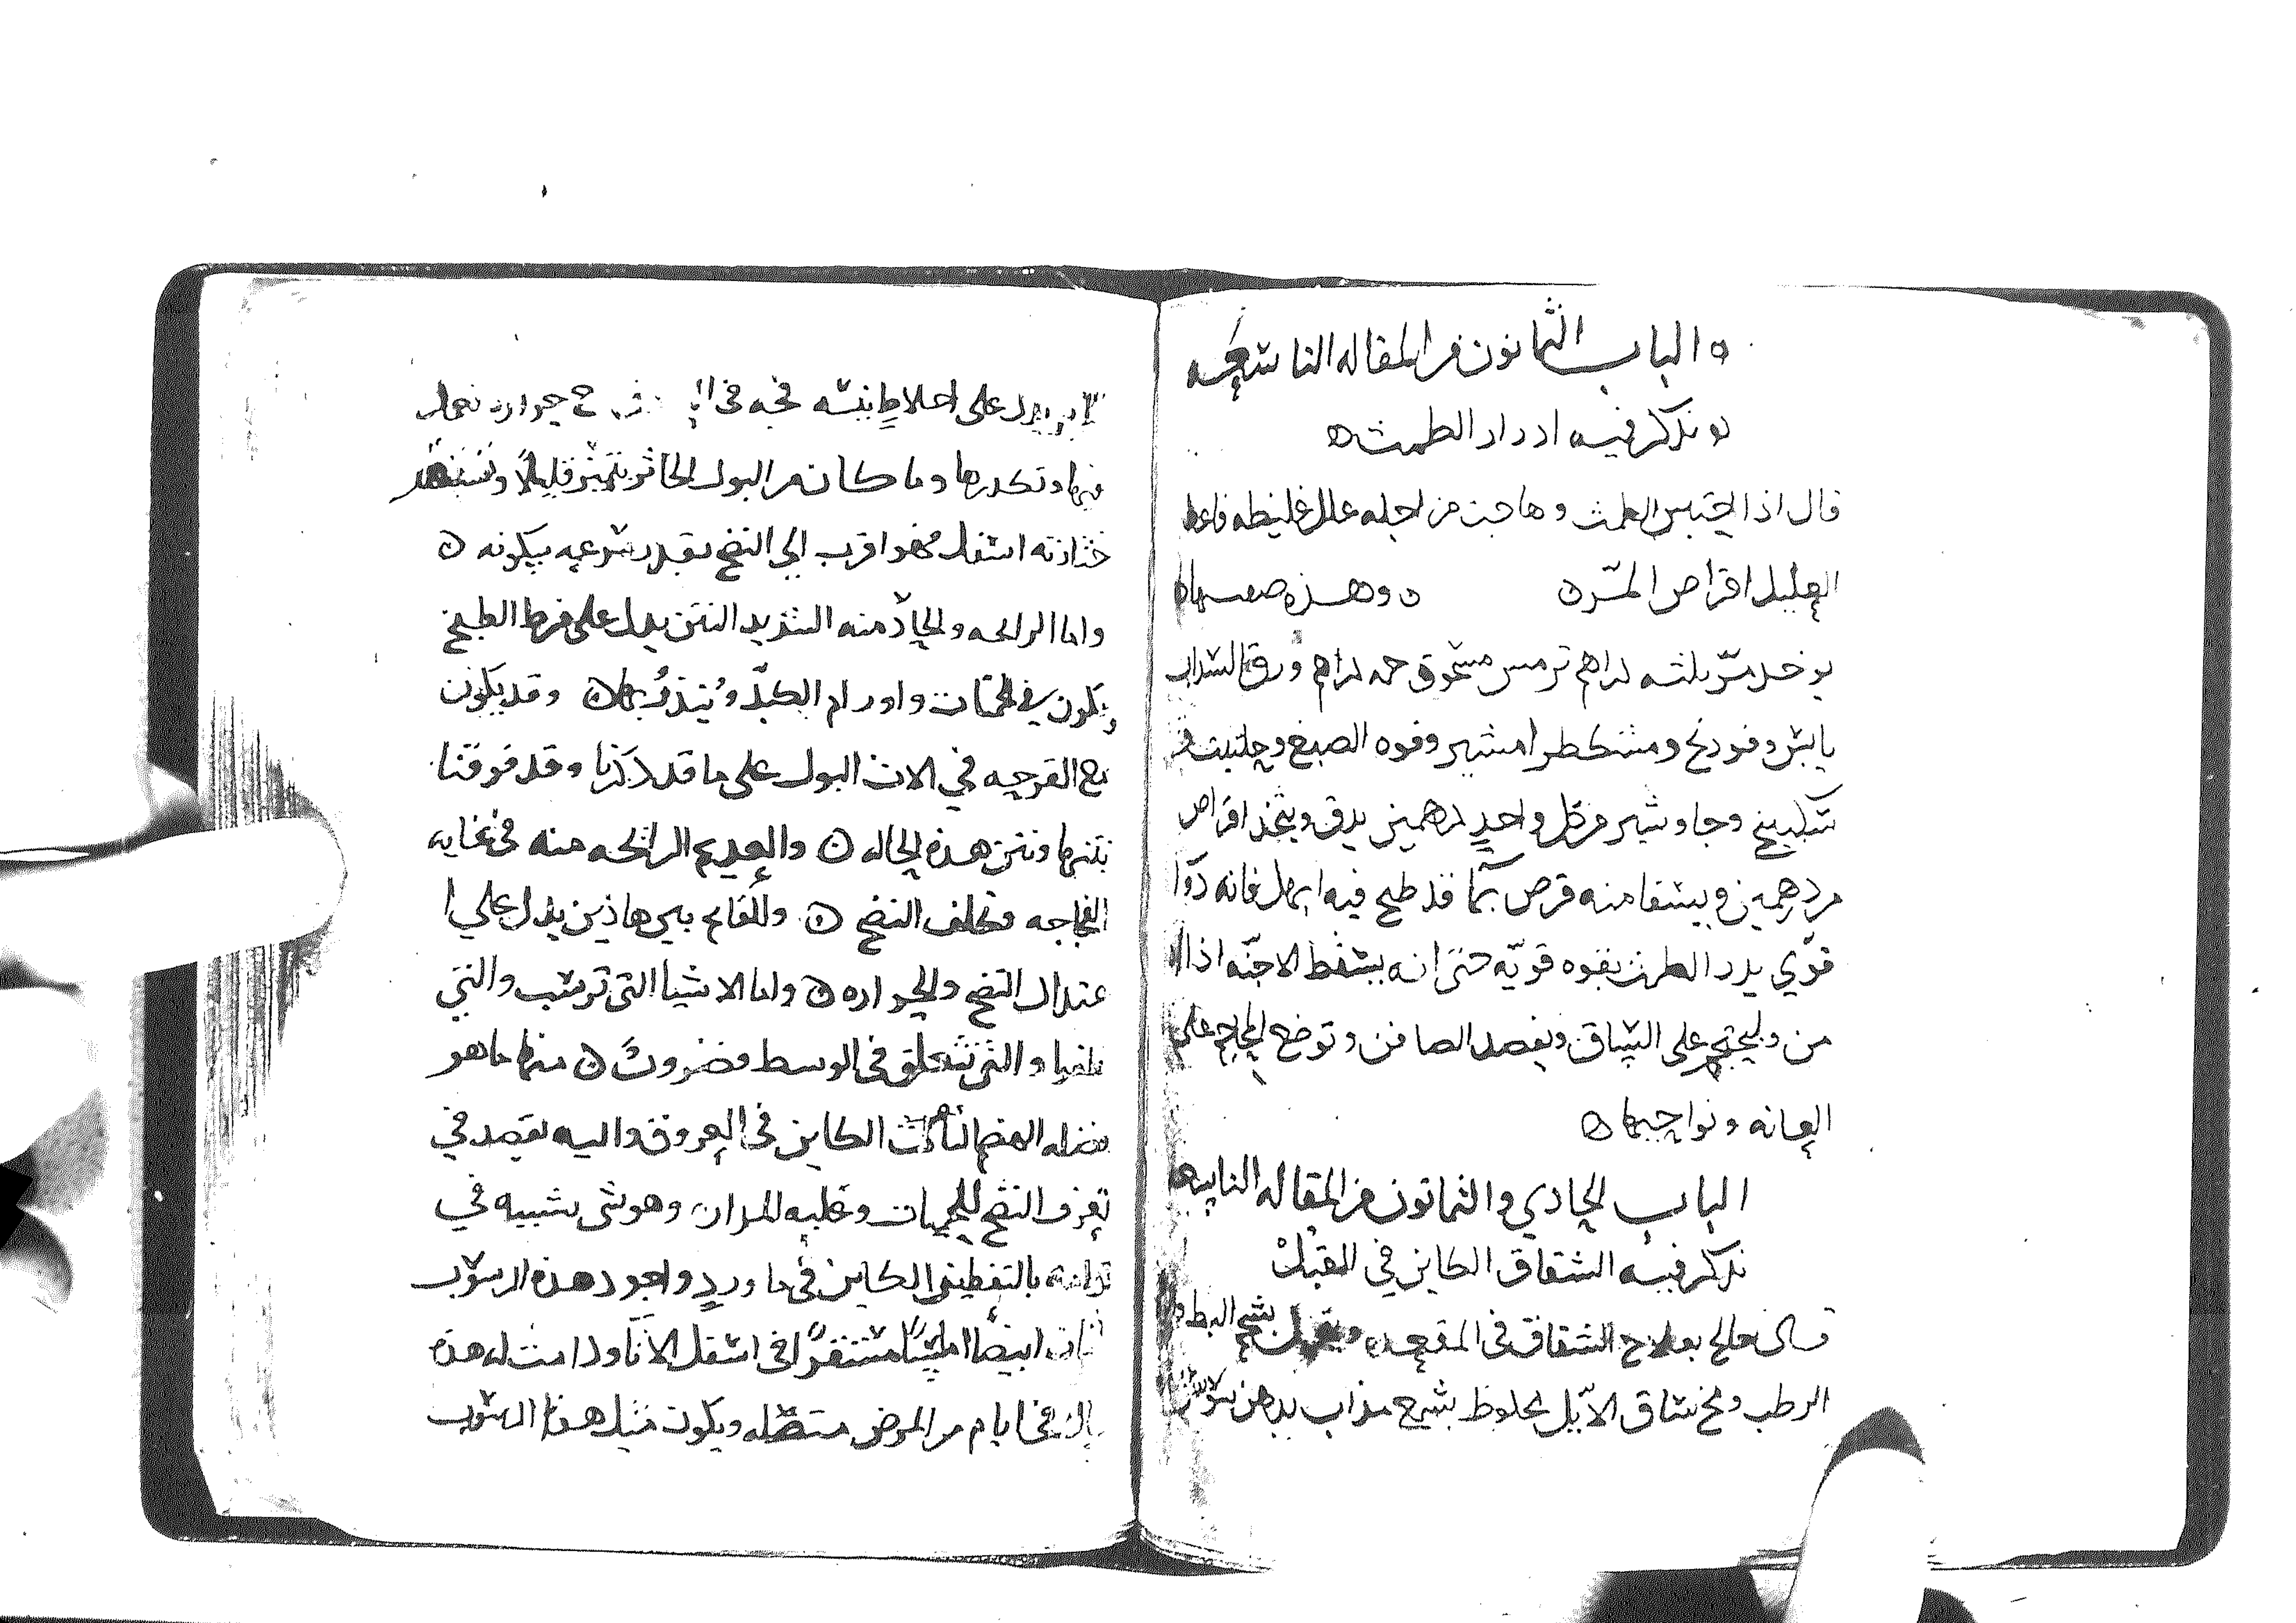 الباب الثمانون من المقاله التاسعه
نذكر فيه ادرار الطمث
قال اذا احتبس الطمث وهاجت من اجله علل غليظه فاعط
العليل اقراص المر وهذه صفتها
يوخذ مر ثلثه دراهم ترمس مسحوق خمسه دراهم وورق السداب
يابس وفودنج ومشكطرامشير وفوه الصبغ وحلتيت و
سكبينج وجاوشير من كل واحد درهمين يدق ويتخذ اقراص
من درهمين ويسقا منه قرص بما قد طبخ فيه ابهل فانه دوا
قوي يدر الطمث بقوه قويه حتى انه يسقط الاجنه اذا
من وليحتجم على الساق ويفصد الصافن وتوضع المحاجم على
العانه ونواحيها
الباب الحادي والثمانون من المقاله
نذكر فيه الشقاق الكاين في القبل
قال عالج بعلاج الشقاق في المقعده بشحم البط
الرطب ومخ ساق الايل مخلوط بشمع مذاب بدهن سوسن
يدل على اخلاط نيئه فجه في
منها وتكدرها وما كان من البول الخاثر يتميز قليلا
خثارته اسفل فهو اقرب الي النضج بقدر سرعه سكونه
واما الرايحه والحاد منه الشديد النتن يدل على فرط الطبخ
ويكون في الحميات واورام الكبد وينذر بها وقد يكون
مع القرحه في الات البول على ما قد ذكرنا وقد فرقنا
نتنها ونتن هذه الحاله والعديم الرايحه منه في غايه
الفجاجه وتخلف النضج والقايم بين هاذين يدل علي ا
عتدال النضج والحراره واما الاشيا التي ترسب والتي
تطفيا والتي تتعلق في الوسط فضروب منها ماهو
فضله الهضم الثالث الكاين في العروق واليه نقصد في
تعرف النضج للحميات وغلبه المرار وهو شي شبيه في
قوامه بالتقطين الكاين في ما ورد واجود هذه الرسوب
ابيضا املسا مستقرا في اسفل الانا ودامت له هذه
في ايام من المرض متصله ويكون مثل هذا الرسوب